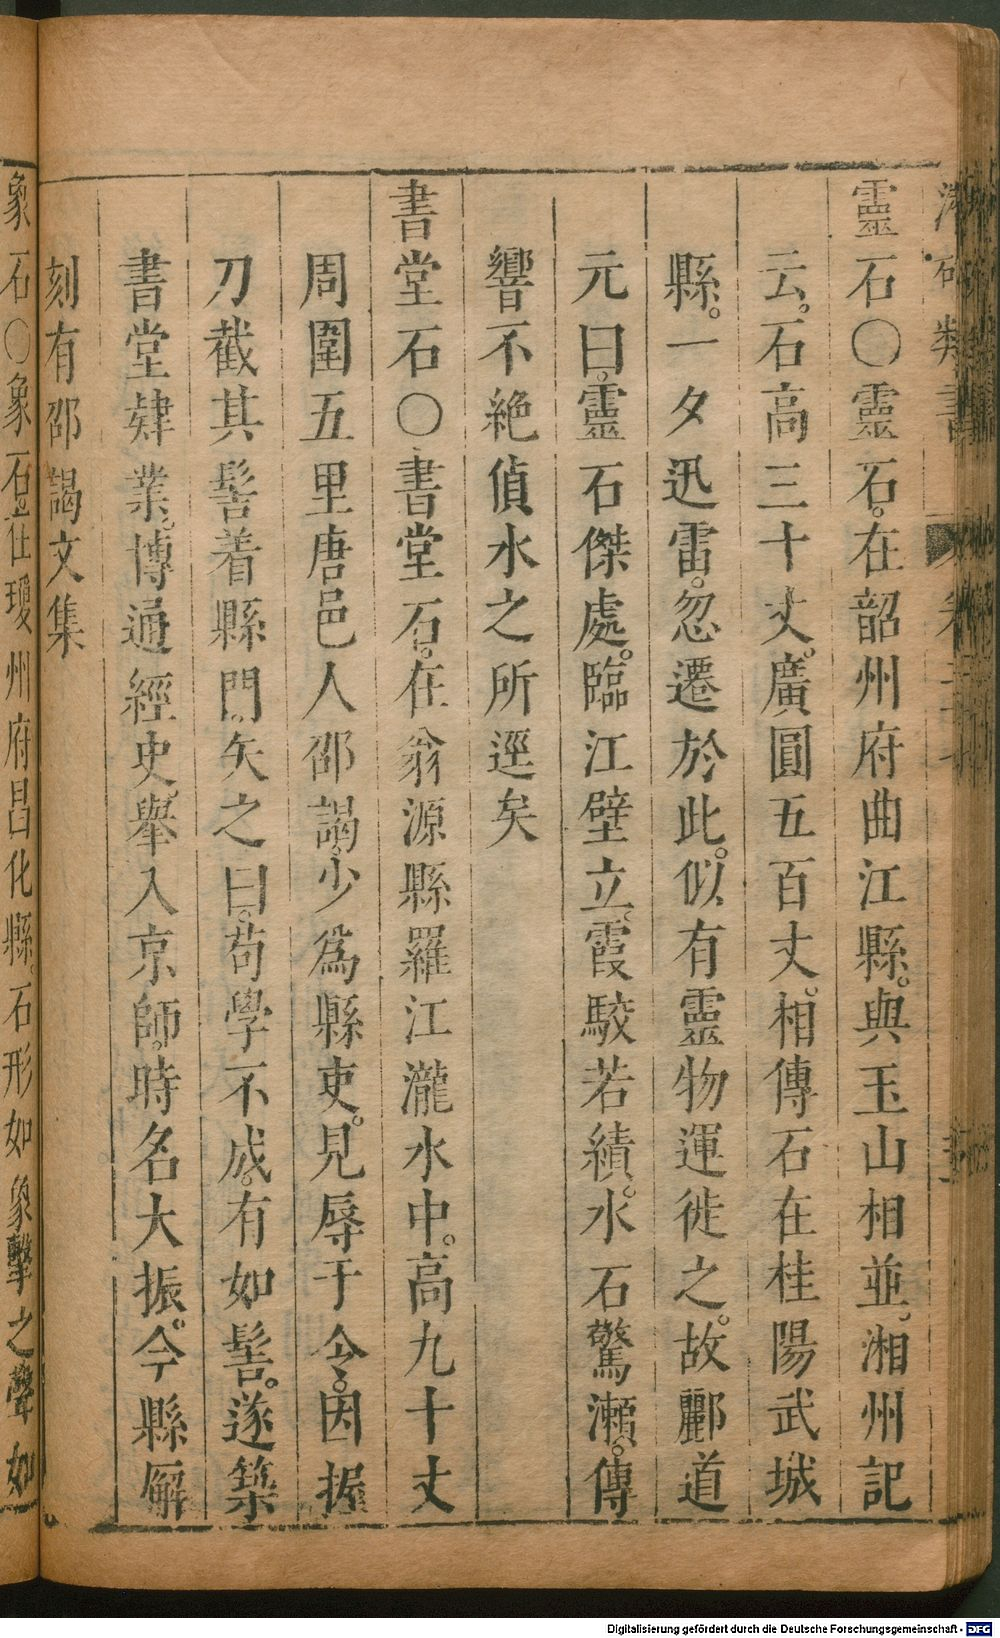 靈石○靈石。在韶州府曲江縣。與玉山相並。湘州記
云。石高三十丈。廣圓五百丈。相傳石在桂陽武城
縣。一夕迅雷。忽遷於此。似有靈物運徙之。故酈道
元曰。靈石傑處。臨江壁立。霞駮若績。水石驚瀨。傳
響不絶。偵水之所逕矣
書堂石○書堂石。在翁源縣羅江瀧水中。高九十丈
周圍五里唐邑人邵謁。少爲縣吏。見辱于令。因握
刀截其髻着縣門。矢之曰。苟學不成。有如髻。遂築
書堂肄業。博通經史。舉入京師。時名大振。今縣廨
刻有邵謁文集
象石○象石在瓊州府昌化縣。石形如象擊之聲如
Digitalisierung gefördert durch die Deutsche Forschungsgemeinschaft - DFG